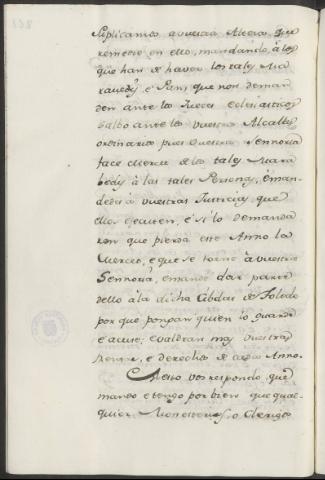 Suplicamos a vuestra Alteza que
remedie en ello, mandando, á los
que han de haver los tales Ma
ravedis, é Pan, que non deman
den ante los Jueces eclesiasticos
salvo ante los vuestros Alcalles
ordinarios pues vuestra Sennoria
face merced de los tales Mara
bedis à las tales Personas, é man
dedes à vuestras Justicias, que
los egecuten, é si lo demanda
ren que pierda este Anno la
Merced, é que se torne à vuestra
Sennoria, é mande dar parte
dello à la dicha Cibdat de Toledo
por que pongan quien lo guarde
é acuse; é valdran mas vuestras
Rentas, é derechos de cada Anno.
A esto vos respondo, que
mando é tengo por bien que qual-
quier Monesterios, o Clerigos